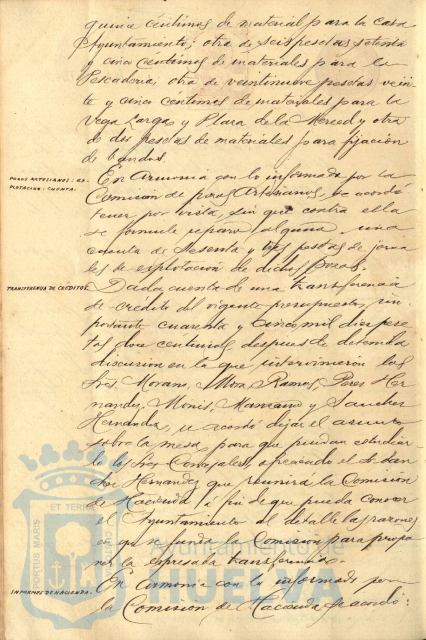 quince céntimos de material para la casa
Ayuntamiento; otra de seis pesetas setenta
y cinco céntimos de materiales para la
Pescaderia; otra de veintinueve pesetas vein-
te y cinco céntimos de materiales para la
Vega Larga y Plaza de la Merced y otra
de dos pesetas de materiales para fijación
de bandos.
POZOS ARTESIANOS: EX-
PLOTACION: CUENTA:
En Armonia con lo informado por la
Comision de pozos Artesianos, se acordó
tener por vista, sin que contra ella
se formule reparo alguno, una
cuenta de sesenta y tres pesetas de jorna-
les de explotacion de dichos Pozos.
TRANSFERENCIA DE CREDITOS
Dada cuenta de una transferencia
de crédito del vigente presupuesto, im-
portante cuarenta y cinco mil diez pese-
tas doce centimos, despues de detenida
discusion en la que intervinieron los
Sres. Morano, Mora Ramos, Perez Her-
nandez, Monis, Manzano y Sanchez
Hernandez, se acordó dejar el asunto
sobre la mesa, para que puedan estudiar-
lo los Sres Concejales, ofreciendo el Sr San-
chez Hernandez que reunirá la Comision
de Hacienda á fin de que pueda conocer
el Ayuntamiento al detalle las razones
en que se funda la Comision para propo-
ner la expresada transferencia.
INFORMES DE HACIENDA.
En armonia con lo informado por
la Comision de Hacienda se acordó:
PORTUS MARIS ET TERRE CUSTODIA
Ayuntamiento de
HUELVA